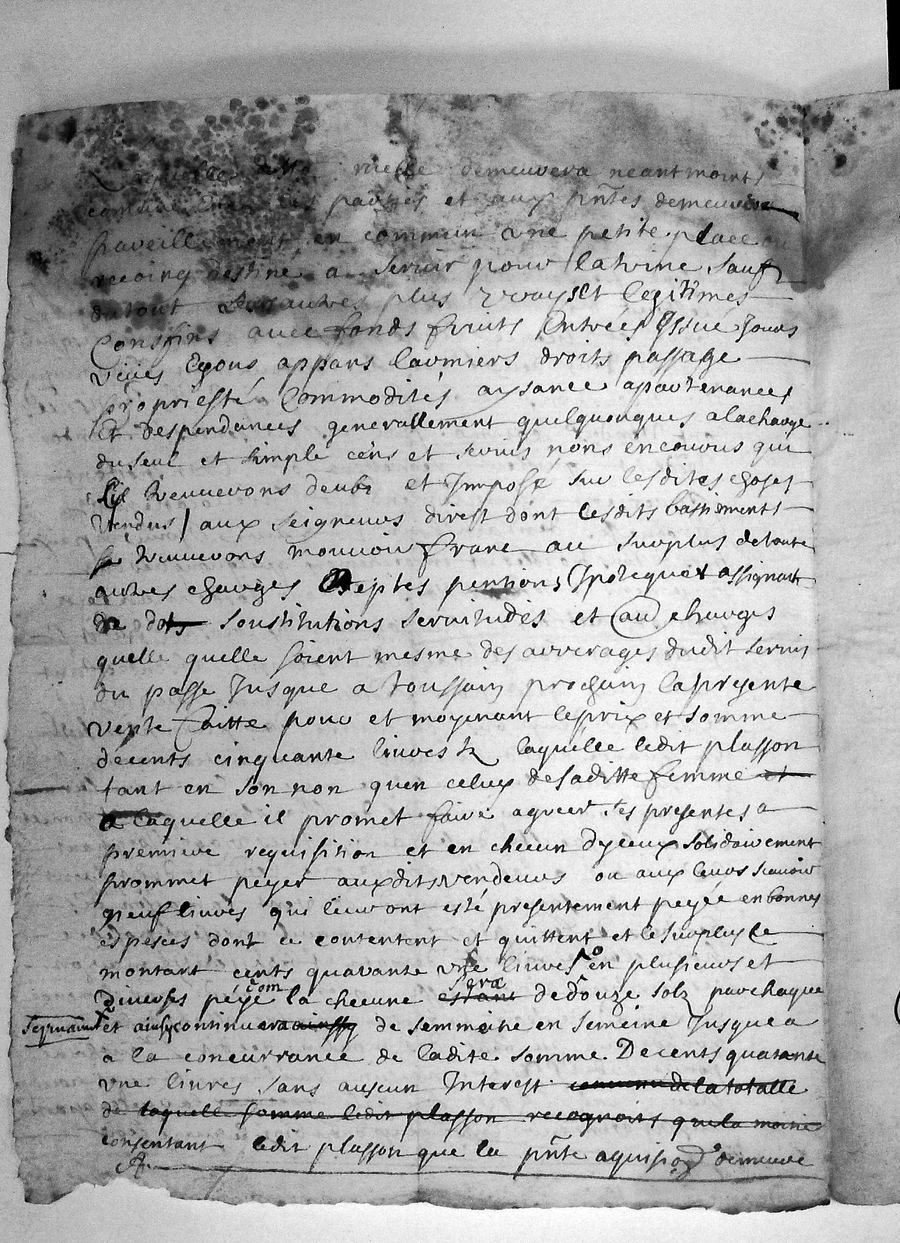 Laquelle ditte ruelle demeurera neantmoins
commune entre les parties et aux pntes demeurera
pareillement en commun une petite place ou
recoing destiné a servir pour latrine sauf
du tout leurs autres plus vrays et legitimes
Consfins avec fonds fruits Entrées Issue Jours
veües Egous appans larmiers droits passage
proprieste Commodités aysance apartenances
Et Despendances generallement quelquonques a la charge
du seul et simple cens et servis nons encourus qui
se treuverons deubs et Imposé sur lesdites choses
vendus / aux seigneurs direst dont lesdits bastiements
se treuverons mouvoir franc au surplus de toute
autres charges debtes pentions Ypoteques assignaut
de dots soustitutions servitudes et au charges
quelle quelle soient mesme des arrerages dudit servis
du passe Jusque a toussain prochain la presente
vente faitte pour et moyenant le prix et somme
de cents cinquante livres laquelle ledit plasson
tant en son non quen celuy de saditte femme et
a laquelle il promet faire agreer ses presentes a
premiere requisition et en checun dyceux solidairement
prommet peyer auxdits vendeurs ou aux leurs scavoir
neuf livres qui leur ont esté presentement peyée en bonnes
espesces dont ce contentent et quittent et le surplus se
montant cents quarante une livres en plusieurs et
Diverses peye la checune estant sera de douze solz par chaque
sepmaine et ainsy continuera ainssy de semmene en semeine Jusque a
a la concurrance de ladite somme De cents quarante
une livres sans aucun Interest comme de la totalle
de laquelle somme ledit plasson recognoits que la moitie
consentant ledit plasson que la pnte aquision demeure